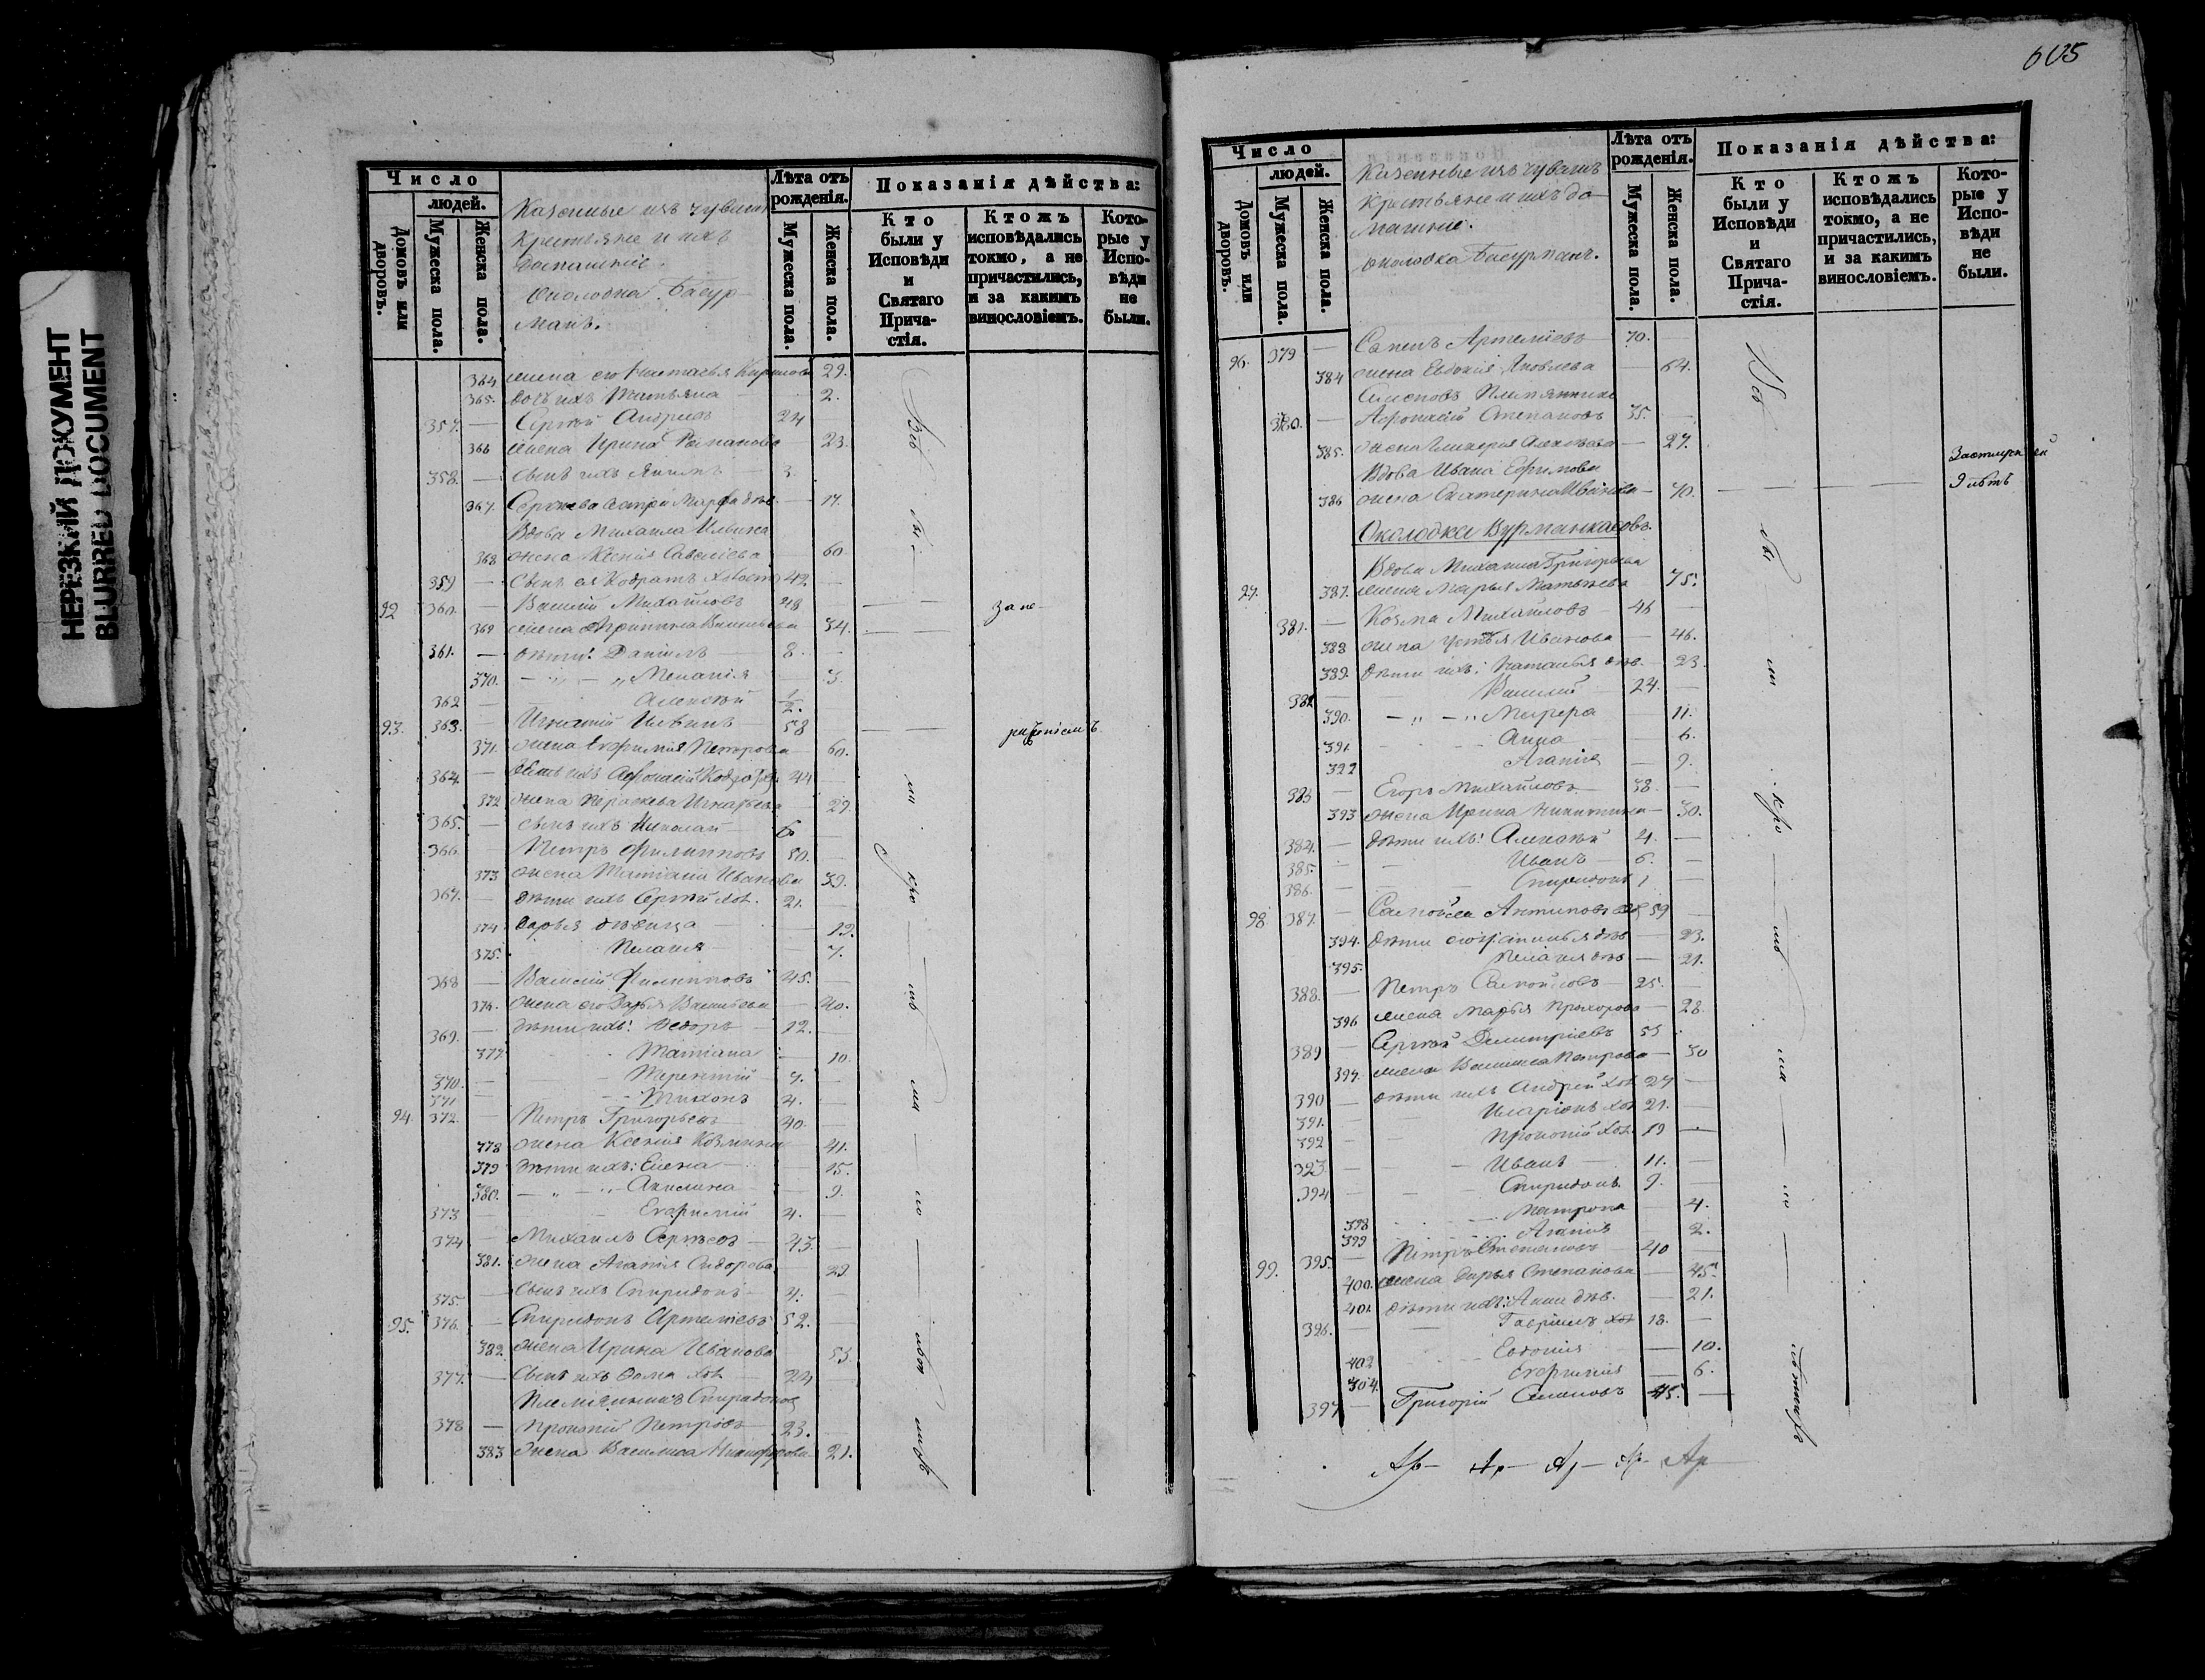 605
НЕРЕЗКИЙ ДОКУМЕНТ
BLURRED DOCUMENT
Число
людей.
Домовъ или дворовъ.
Мужеска пола.
Женска пола.
Казенные изъ чувашъ
крестьяне и ихъ
домашніе.
Околодка Басур-
манъ.
Лѣта отъ рожденія.
Мужеска пола.
Женска пола.
Показанія дѣйства:
Кто были у Исповѣди и Святаго Причастія.
Ктожъ исповѣдались токмо, а не причастились, и за какимъ винословіемъ.
Которые у Исповѣди не были.
364 жена его Настасья Кирилова 29.
365. дочь ихъ Татьяна 2.
357. Сергѣй Андреевъ 24
366 жена Ирина Романова 23.
358. сынъ ихъ Якимъ 3.
367. Сергѣева сестра Марфа дѣв. 17.
Вдова Михаила Ильина
368 жена Ксенія Савельева 60.
359 сынъ ея Кодратъ холост 42.
92 360. Василій Михайловъ 48 за не-
369 жена Агрипина Васильева 34.
361. дѣти: Даніилъ 8.
370. Меланія 3.
362 Алексѣй 1/2.
93. 363. Игнатій Ильинъ 58 рѣшеніемъ
371. жена Евфимія Петрова 60.
364. Зять ихъ Афонасій Кодратьев 44
372 жена Параскева Игнатьева 29.
365. сынъ ихъ Николай 6
366. Петръ Филипповъ 50.
373 жена Татіана Иванова 39.
367. дѣти ихъ Сергѣй хол. 21.
374 Дарья дѣвица 19.
375. Пелагея 7.
368 Василій Филипповъ 45.
376. жена его Дарья Васильева 40.
369. дѣти ихъ: Ѳедоръ 12.
377. Татіана 10.
370. Терентій 7.
371 Тихонъ 4.
94. 372. Петръ Григорьевъ 40.
378 жена Ксенія Козмина 41.
379 дѣти ихъ: Елена 15.
380. Акилина 9.
373 Евфимій 4.
374 Михаилъ Сергѣевъ 43.
381. жена Агапія Сидорова 29
375. Сынъ ихъ Спиридонъ 4.
95. 376. Спиридонъ Артеміевъ 52.
382. жена Ирина Иванова 53.
377. Сынъ ихъ Ѳома хол. 24
Племянникъ Спиридонов
378 Прокопій Петровъ 23.
383 жена Василиса Никифорова 21.
Число
людей.
Домовъ или дворовъ.
Мужеска пола.
Женска пола.
Казенные изъ чувашъ
крестьяне и ихъ до-
машніе.
околодка Басурманъ.
Лѣта отъ рожденія.
Мужеска пола.
Женска пола.
Показанія дѣйства:
Кто были у Исповѣди и Святаго Причастія.
Ктожъ исповѣдались токмо, а не причастились, и за какимъ винословіемъ.
Которые у Исповѣди не были.
96. 379 Семенъ Артеміевъ 70.
384 жена Евдокія Яковлева 64.
Семеновъ Племянникъ
380. Афонасій Степановъ 35.
385. жена Гликерія Алексѣева 27.
Вдова Ивана Ефимова
386 жена Екатерина Иванова 70. За старостію
лѣтъ
Околодка Вурманкасовъ.
Вдова Михаила Григорьева
97. 387. жена Марья Матвѣева 75.
381. Козма Михайловъ 46
388 жена Устинья Иванова 46.
389. дѣти ихъ: Наталья дѣв. 23.
382 Василій 24.
390. Марфа 11.
391. Анна 6.
392 Агапія 9.
383 Егоръ Михайловъ 38.
393 жена Ирина Никитина 30.
384. дѣти ихъ: Алексѣй 4.
385. Иванъ 6.
386. Спиридонъ 1
98. 387. Самойла Антиповъ вд 59
394. дѣти его дѣв 23.
395. Пелагея дѣв 21.
388. Петръ Самойловъ 25.
396 жена Марья Прохорова 28.
389 Сергѣй Димитріевъ 53
397. жена Василиса Петрова 50
390 дѣти ихъ Андрей хол. 27
391. Иларіонъ хол 21.
392 Прокопій хол. 19
393. Иванъ 11.
394 Спиридонъ. 9.
398 Матрона 4.
399 Агапія 2.
99. 395. Петръ Степановъ 40
400. жена Дарья Степанова 45.
401. дѣти ихъ: Анна дѣв. 21.
396. Гавріилъ хол 18.
402 Евдокія 10.
404. Евфимія 6.
397 Григорій Семеновъ 45.